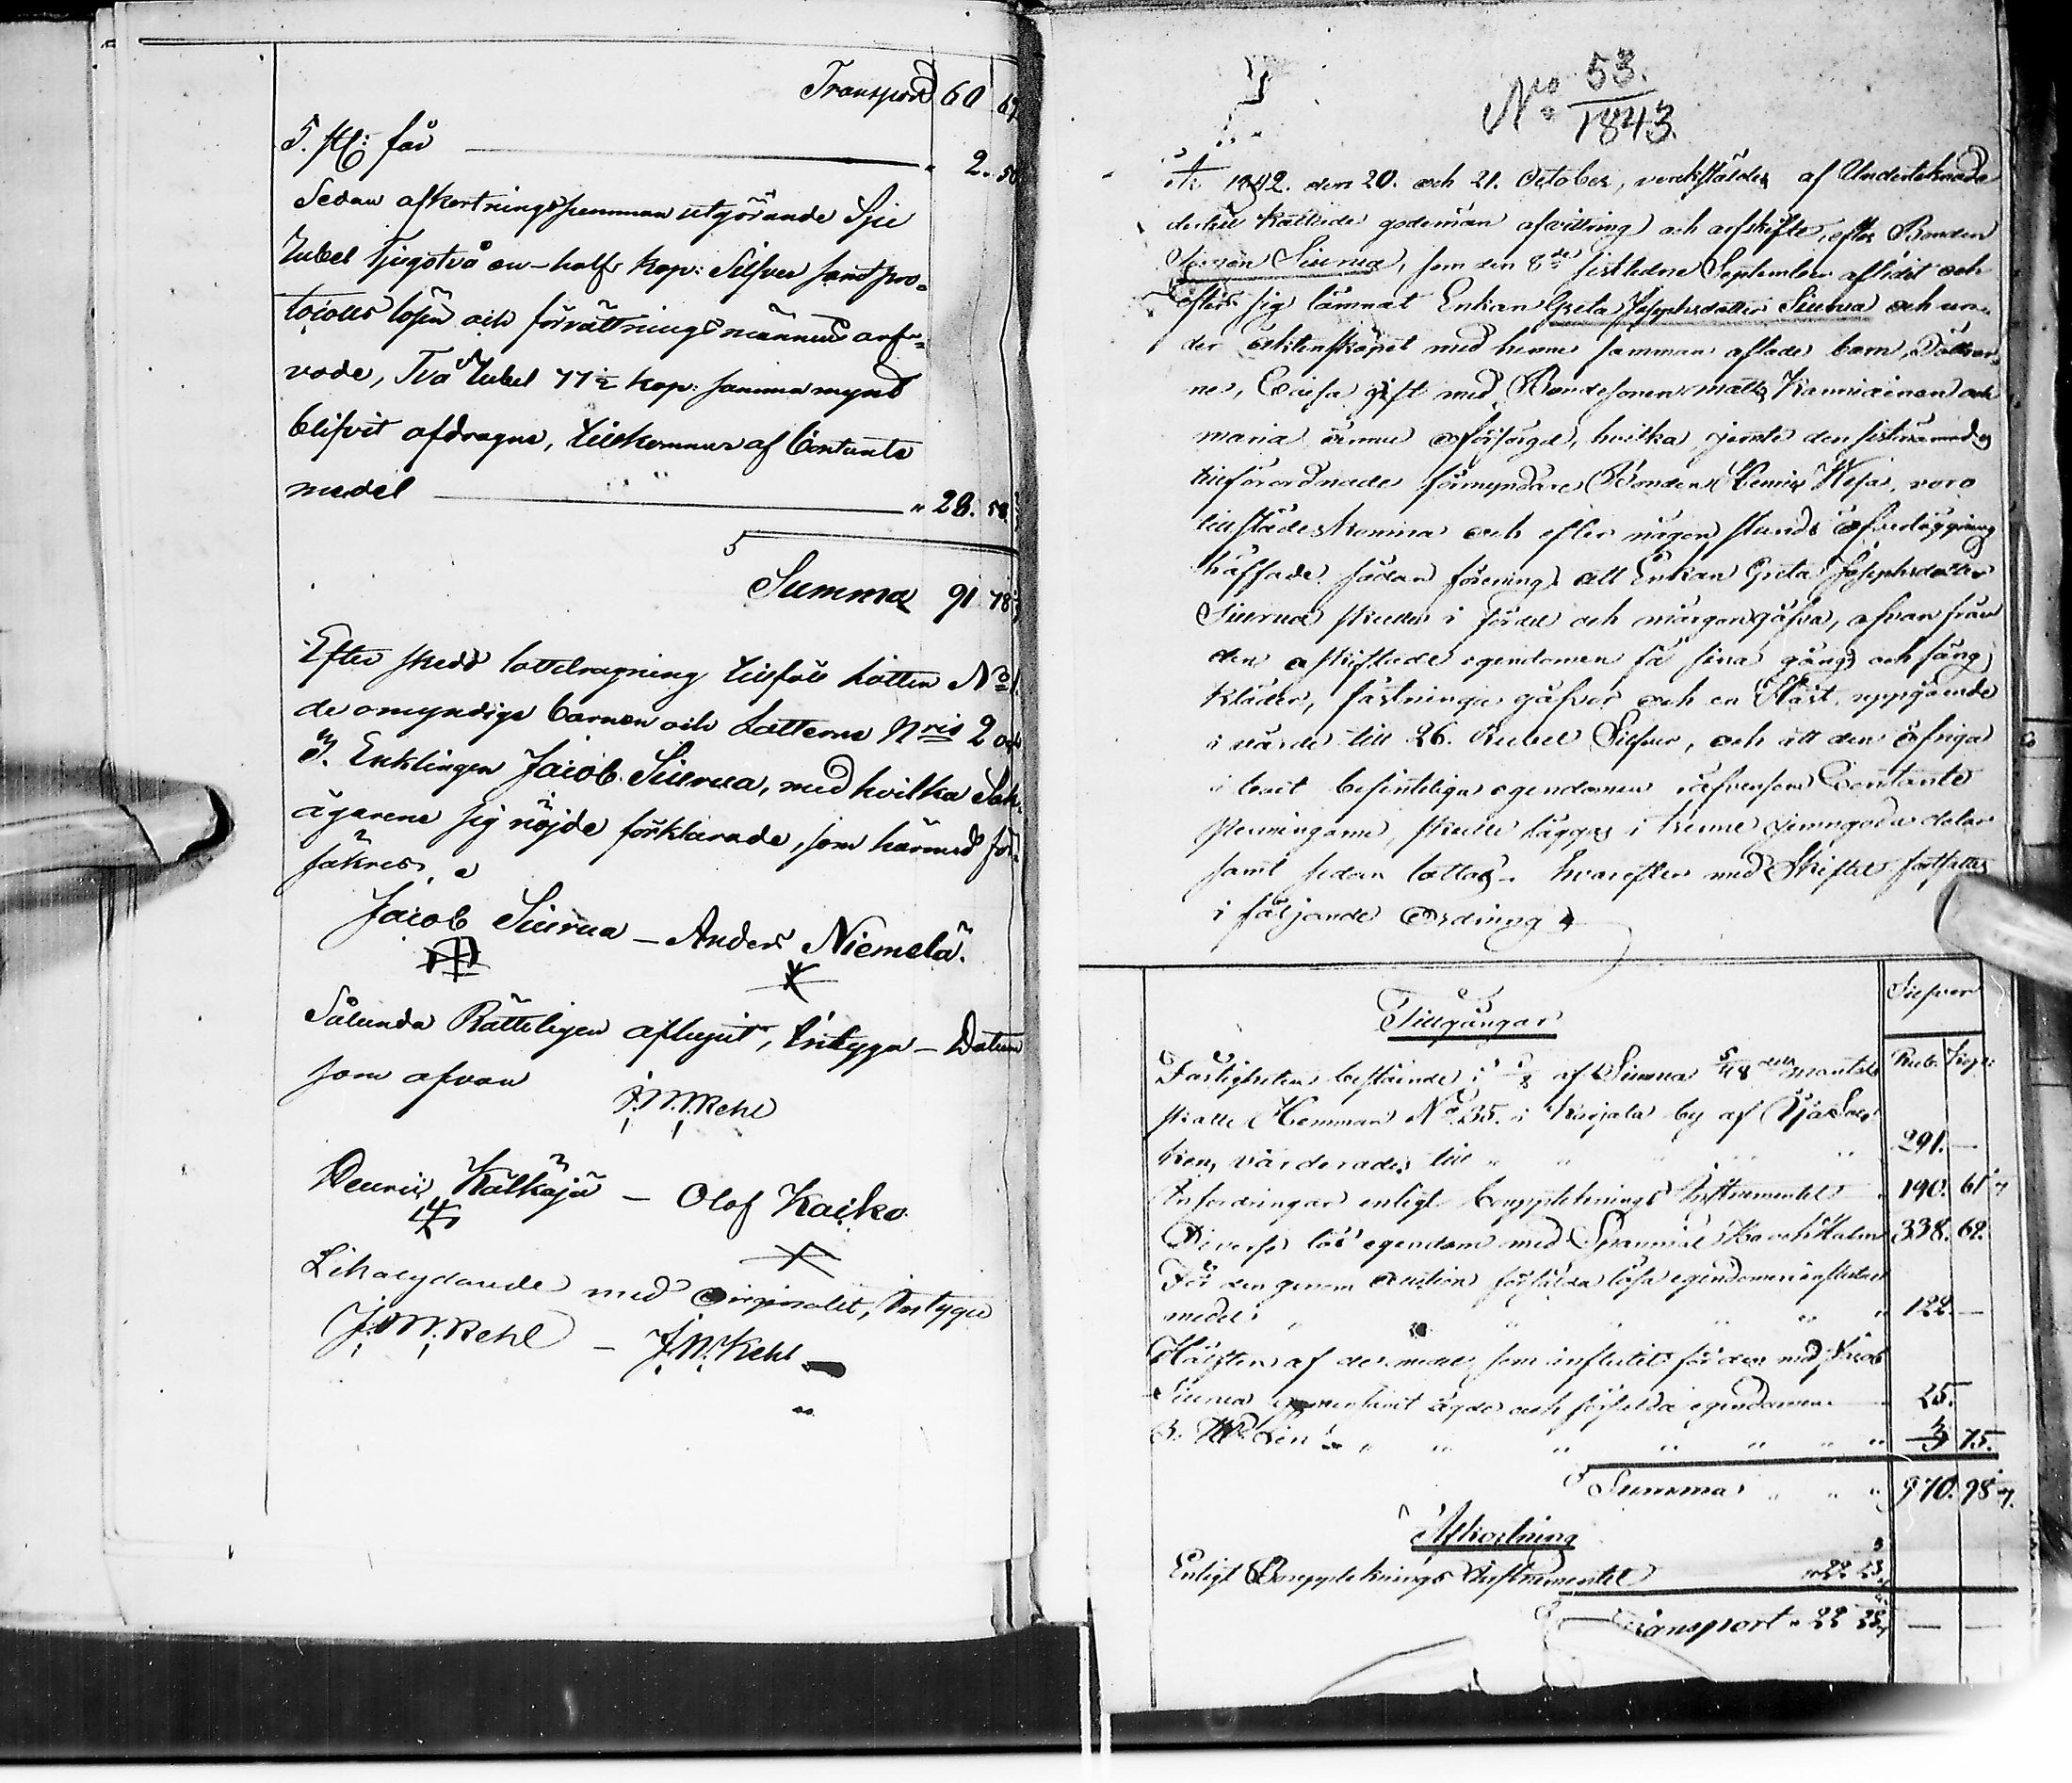 Transport 60 64
5. st: får " 2. 50
Sedan afkortningssumman utgörande Sju
Rubel tjugotvå en-half kop: Silfver samt pro-
tocolls lösen och förrättningsmännens arf-
vode, Två Rubel 77½ kop: samma mynt
blifvit afdragne, tillkommer af Contante
medel " 28. 58.
Summa 91 78
Efter skedd lottdragning tillföll Lotten No 1.
de omyndiga barnen och Lotterne Nris 2 och
3. Enklingen Jacob Siurua, med hvilka Sak-
ägarena sig nöjde förklarade, som härmed för-
säkras.
Jacob Siurua – Anders Niemelä.
Sålunda Rätteligen aflupit, Intyga – Datum
som ofvan
J. M. Kehl
Henric Kälkäjä – Olof Kaiko
Likalydande med originalet, Intyga
J. M. Kehl – J. M. Kehl
No 53.
1843.
År 1842. den 20. och 21. October, verkstäldes af Undertecknade
dertill kallade godemän afvittring och arfskifte, efter Bonden
Simon Siurua, som den 8de sistledne September aflidit och
efter sig lämnat Enkan Greta Josephsdotter Siurua och un-
der äktenskapet med henne samman aflade barn, Döttrar-
ne, Caisa gift med Bondesonen Matts Kanniainen och
Maria ännu oförsörgd, hvilka, jemte den sistnämndes
tillförordnade förmyndare Bonden Henric Wesa, voro
tillstädeskomna och efter någon stunds öfverläggning
träffade sådan förening att Enkan Greta Josephsdotter
Siurua skulle i fördel och morgongåfva, ofvan från
den oskiftade egendomen få sina gång och säng
kläder, fästninga gåfvor och en Häst, uppgående
i värde till 26. Rubel Silfver, och att den öfriga
i boet befinteliga egendomen äfvensom Contante
penningarne, skulle läggas i tvenne jemngoda delar
samt sedan lottas. hvarefter med Skiftet fortsattes
i följande Ordning
Tillgångar
Silfver
Rub. Kop:
Fastigheten bestående i 1/8 af Siurua 5/48 dels mantals
skatte Hemman No 35. i Kurjala by af Ijå Soc-
ken, värderades till 291. –
Infordringar enligt Boupptecknings Instrumentet 190. 61
Diverse lös egendom med Spannmål Ho och Halm 338. 62.
För den genom auction försålda lösa egendomen influtne
medel 122. –
Hälften af de medel som influtit för den med Jacob
Siurua gemensamt ägde och försålda egendomen 25.
3. Lin 3 75.
Summa 970. 98
Afkortning
Enligt Boupptecknings Instrumentet 22 23
Transport " 22 23 – –